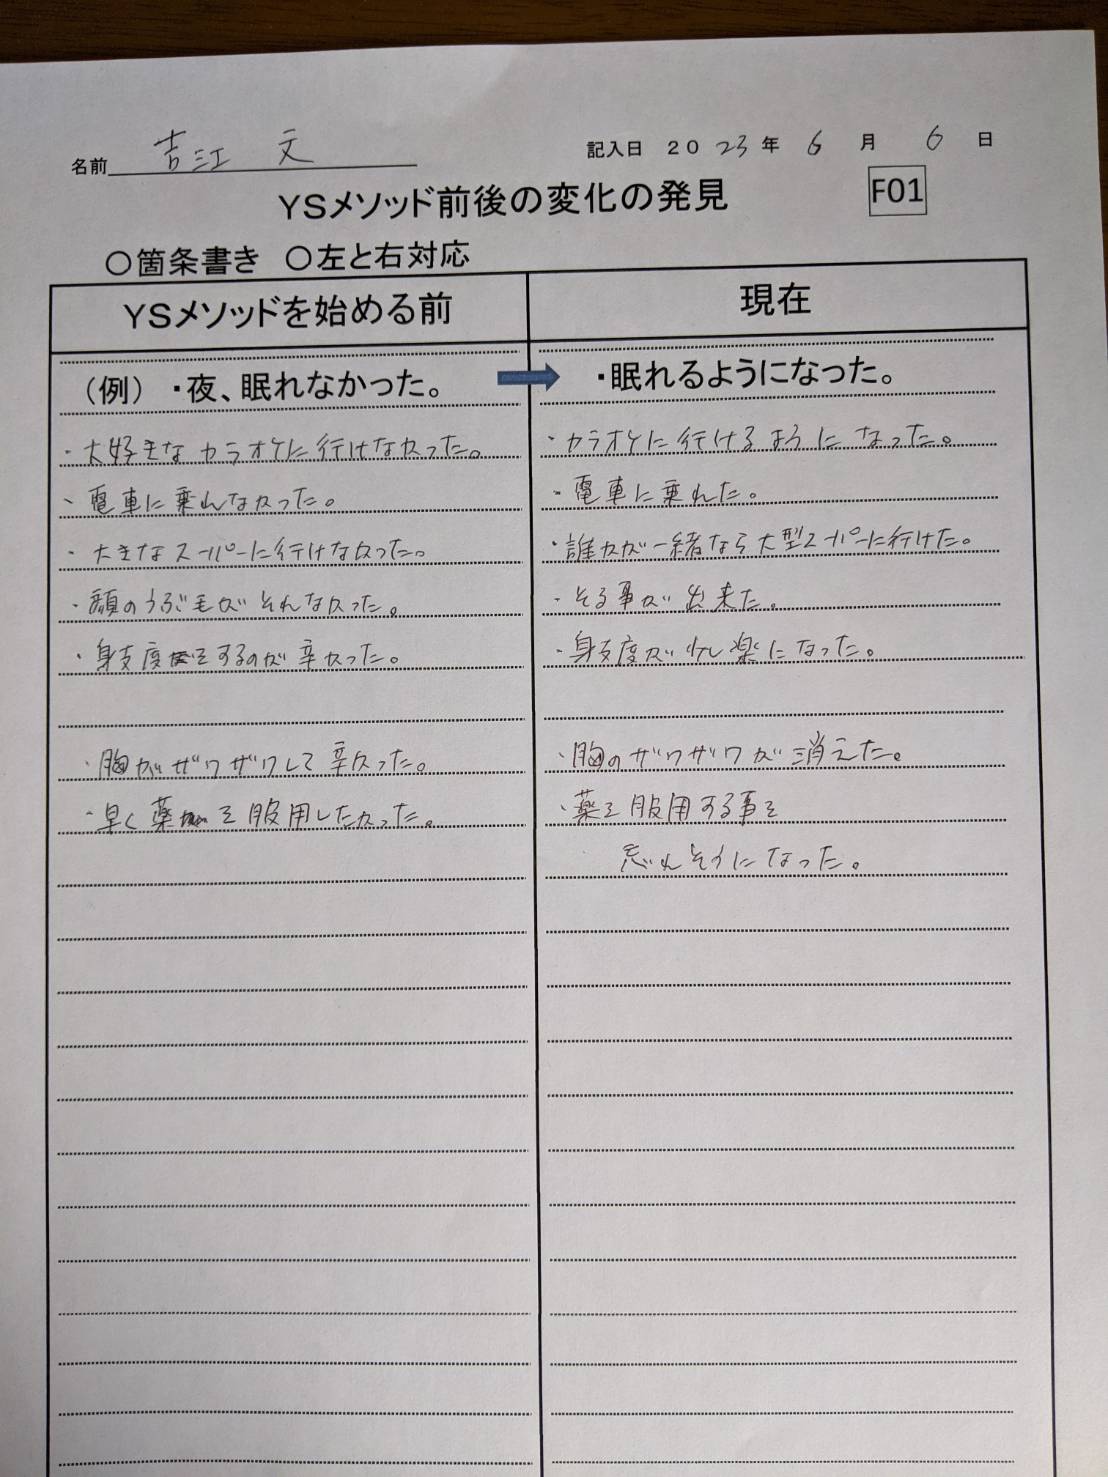 名前 吉江 文 記入日 2023年 6月 6日
YSメソッド前後の変化の発見 F01
○箇条書き ○左と右対応
YSメソッドを始める前
(例) ・夜、眠れなかった。
・大好きなカラオケに行けなかった。
・電車に乗れなかった。
・大きなスーパーに行けなかった。
・顔のうぶ毛がそれなかった。
・身支度をするのが辛かった。
・胸がザワザワして辛かった。
・早く薬を服用したかった。
現在
・眠れるようになった。
・カラオケに行けるようになった。
・電車に乗れた。
・誰かが一緒なら大型スーパーに行けた。
・そる事が出来た。
・身支度が少し楽になった。
・胸のザワザワが消えた。
・薬を服用する事を
忘れそうになった。